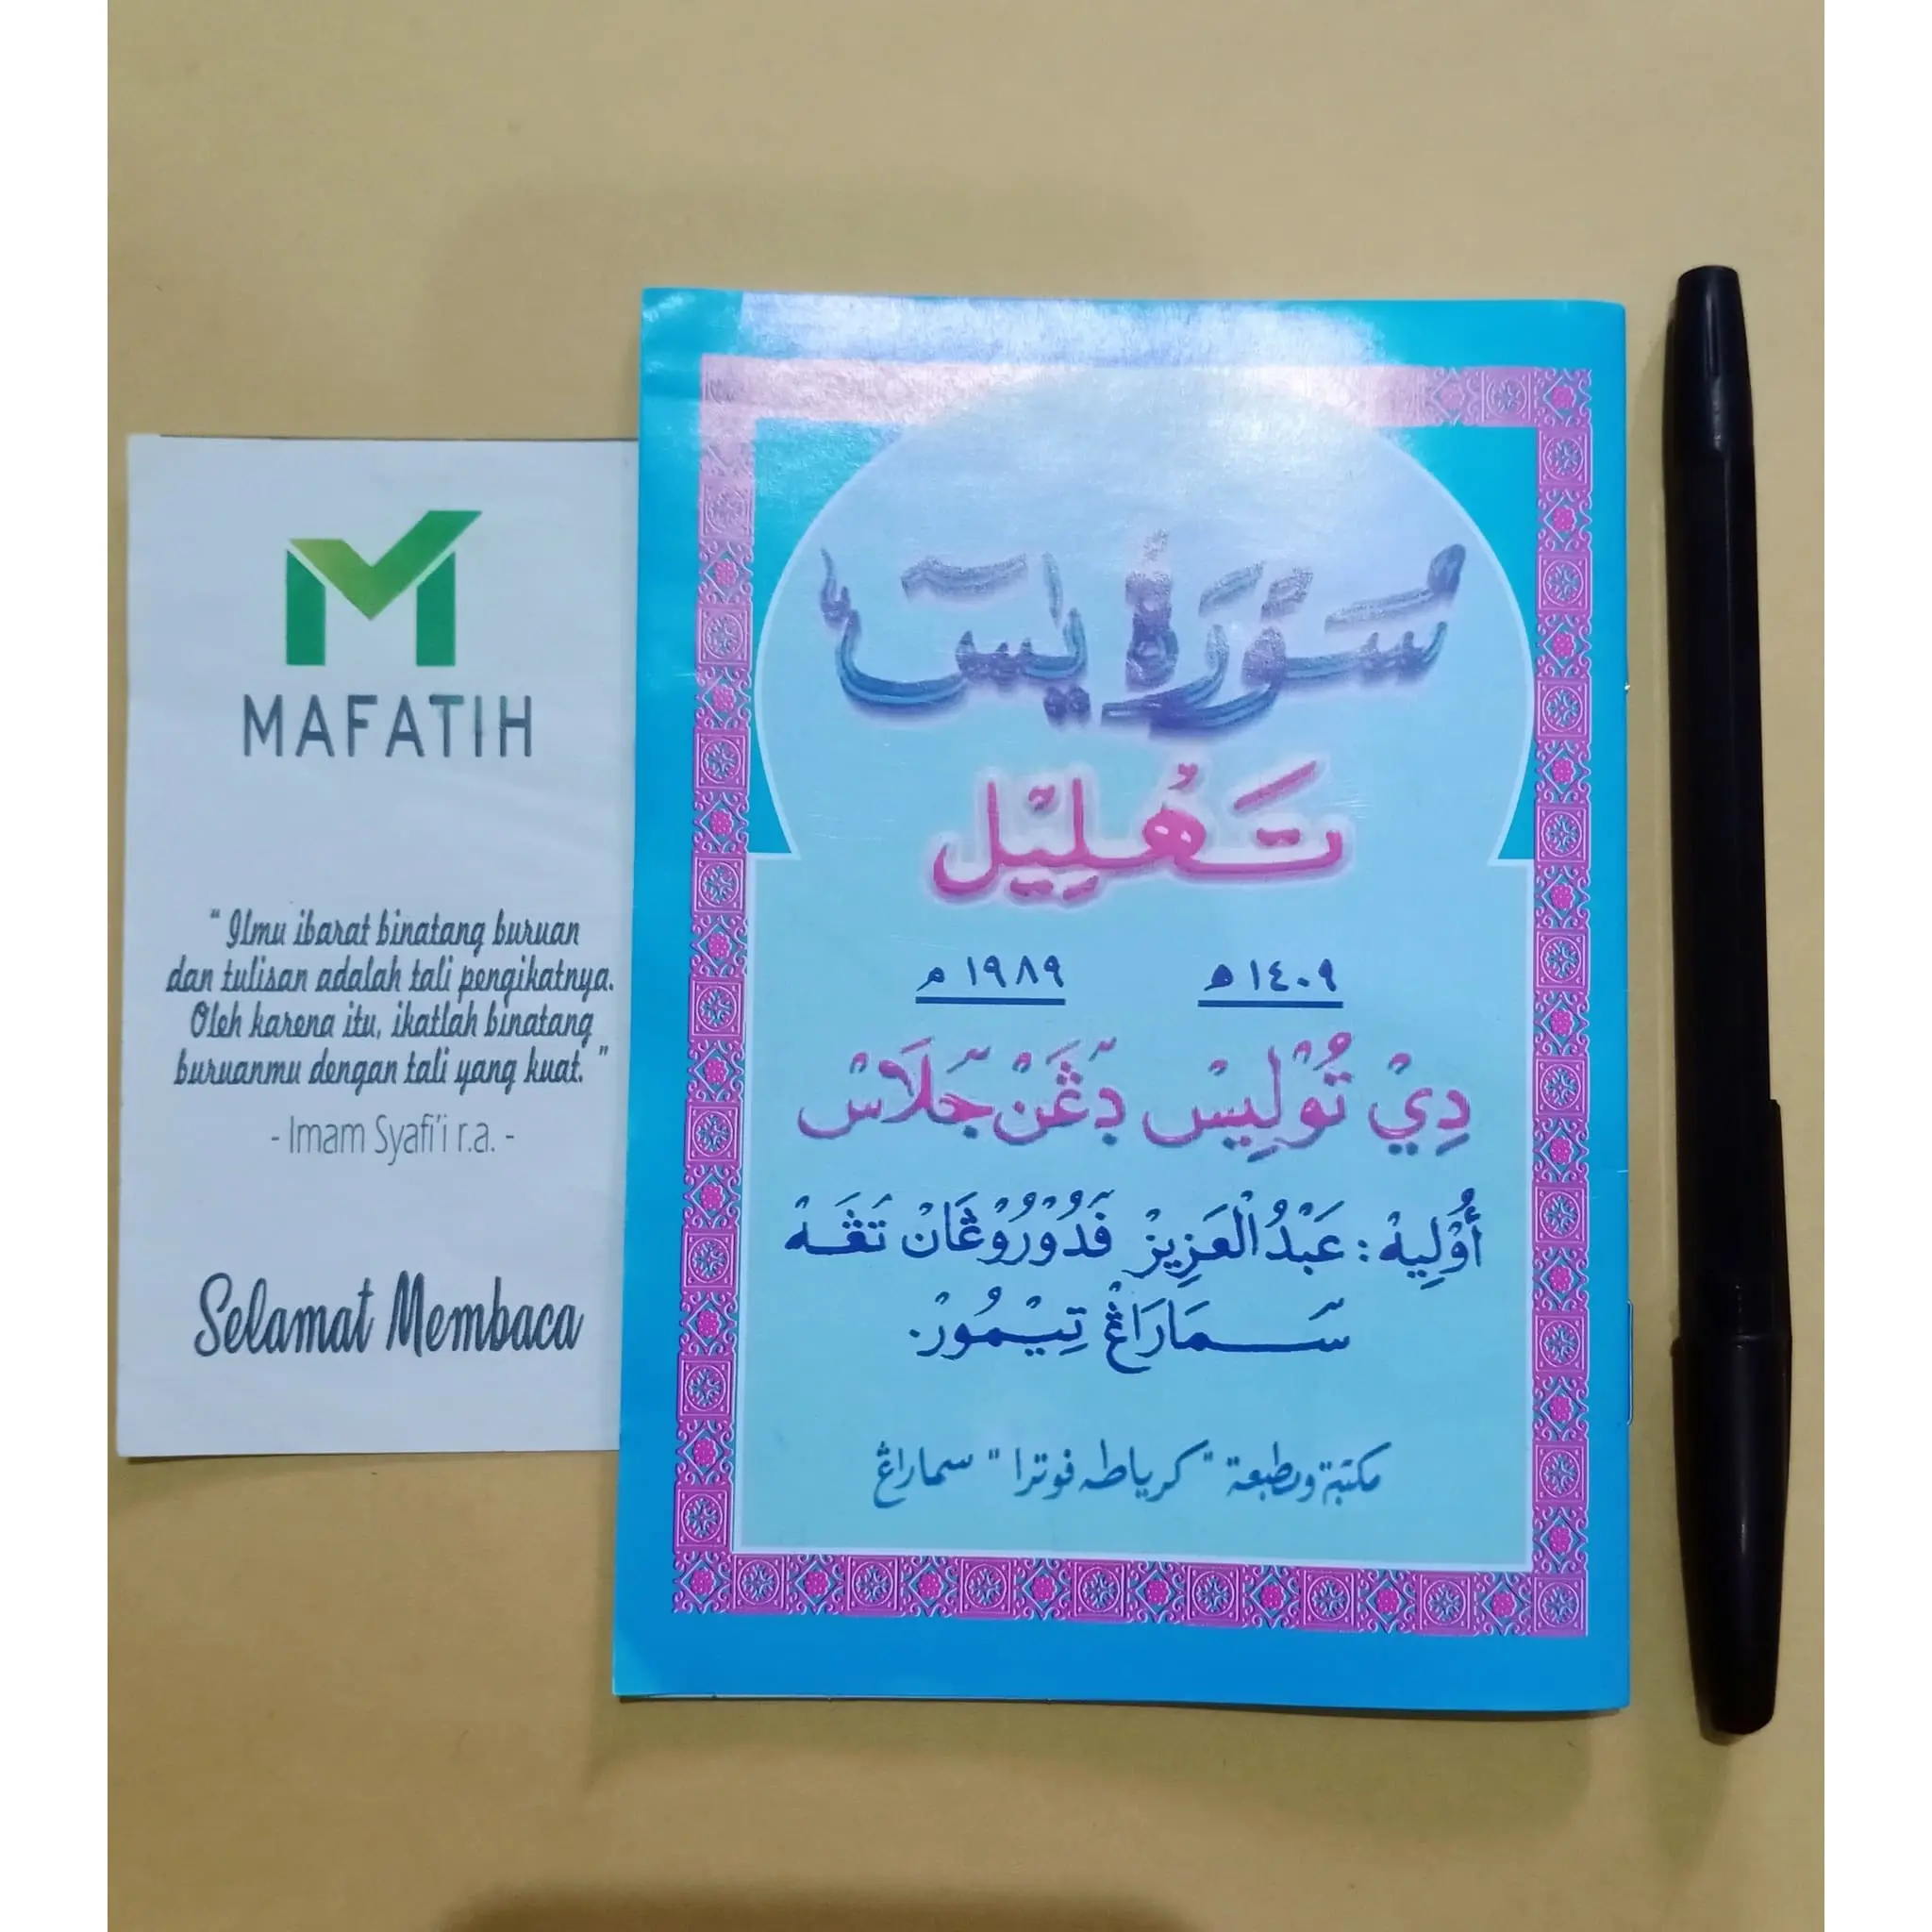 MAFATIH
“ Ilmu ibarat binatang buruan
dan tulisan adalah tali pengikatnya.
Oleh karena itu, ikatlah binatang
buruanmu dengan tali yang kuat. ”
- Imam Syafi'i r.a. -
Selamat Membaca
سُوْرَةُ يٰسٓ
تَهْلِيْل
١٤٠٩ ه ١٩٨٩ م
دِيْ تُوْلِيْس دڠَنْ جَلَاسْ
أُوْلِيْه : عَبْدُ الْعَزِيزْ فَدُوْرُوْڠَانْ تڠَهْ
سَمَارَاڠْ تِيْمُوْر.
مكتبة ومطبعة " كرياطه فوترا " سماراڠ